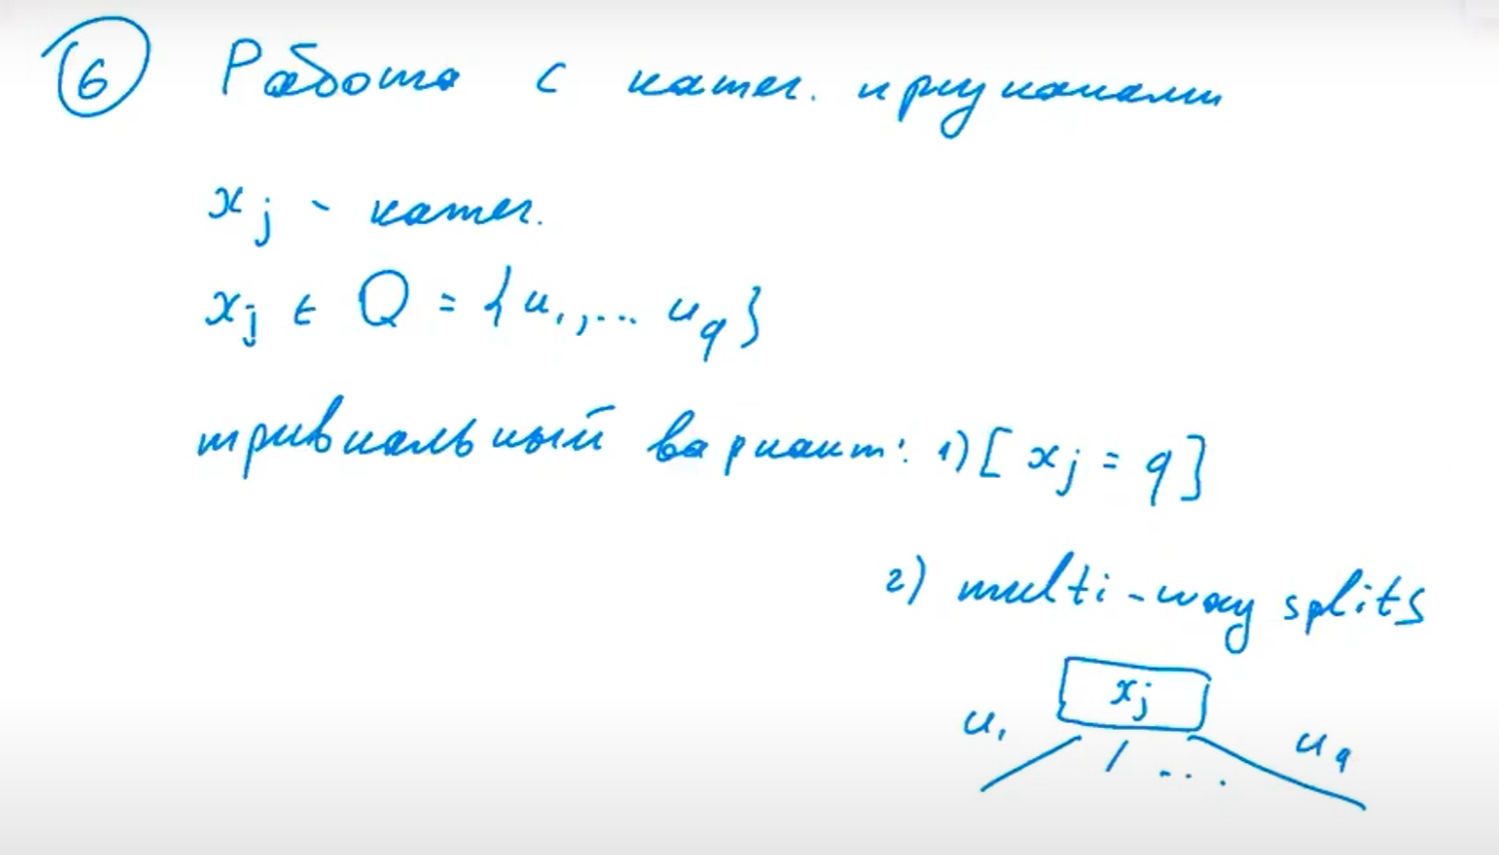 6 Работа с катег. признаками
x_j - катег.
x_j ∈ Q = {u_1, ... u_q}
тривиальный вариант: 1) [x_j = q]
2) multi-way splits
x_j
u_1 ... u_q